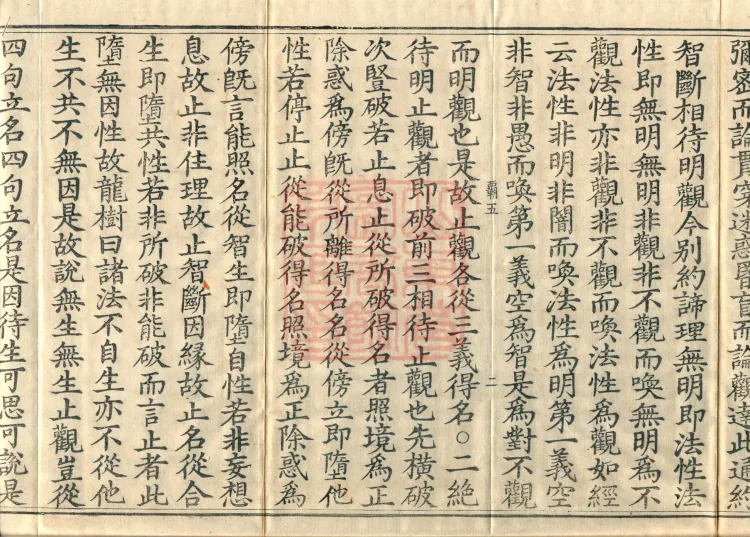 彌密而論貫穿迷惑昏盲而論觀達此通約
智斷相待明觀今別約諦理無明即法性法
性即無明無明非觀非不觀而喚無明為不
觀法性亦非觀非不觀而喚法性為觀如經
云法性非明非闇而喚法性為明第一義空
非智非愚而喚第一義空為智是為對不觀
霸五 二
而明觀也是故止觀各從三義得名○二絕
待明止觀者即破前三相待止觀也先橫破
次竪破若止息止從所破得名者照境為正
除惑為傍旣從所離得名名從傍立即墮他
性若停止止從能破得名照境為正除惑為
傍旣言能照名從智生即墮自性若非妄想
息故止非住理故止智斷因緣故止名從合
生即墮共性若非所破非能破而言止者此
墮無因性故龍樹曰諸法不自生亦不從他
生不共不無因是故說無生無生止觀豈從
四句立名四句立名是因待生可思可說是